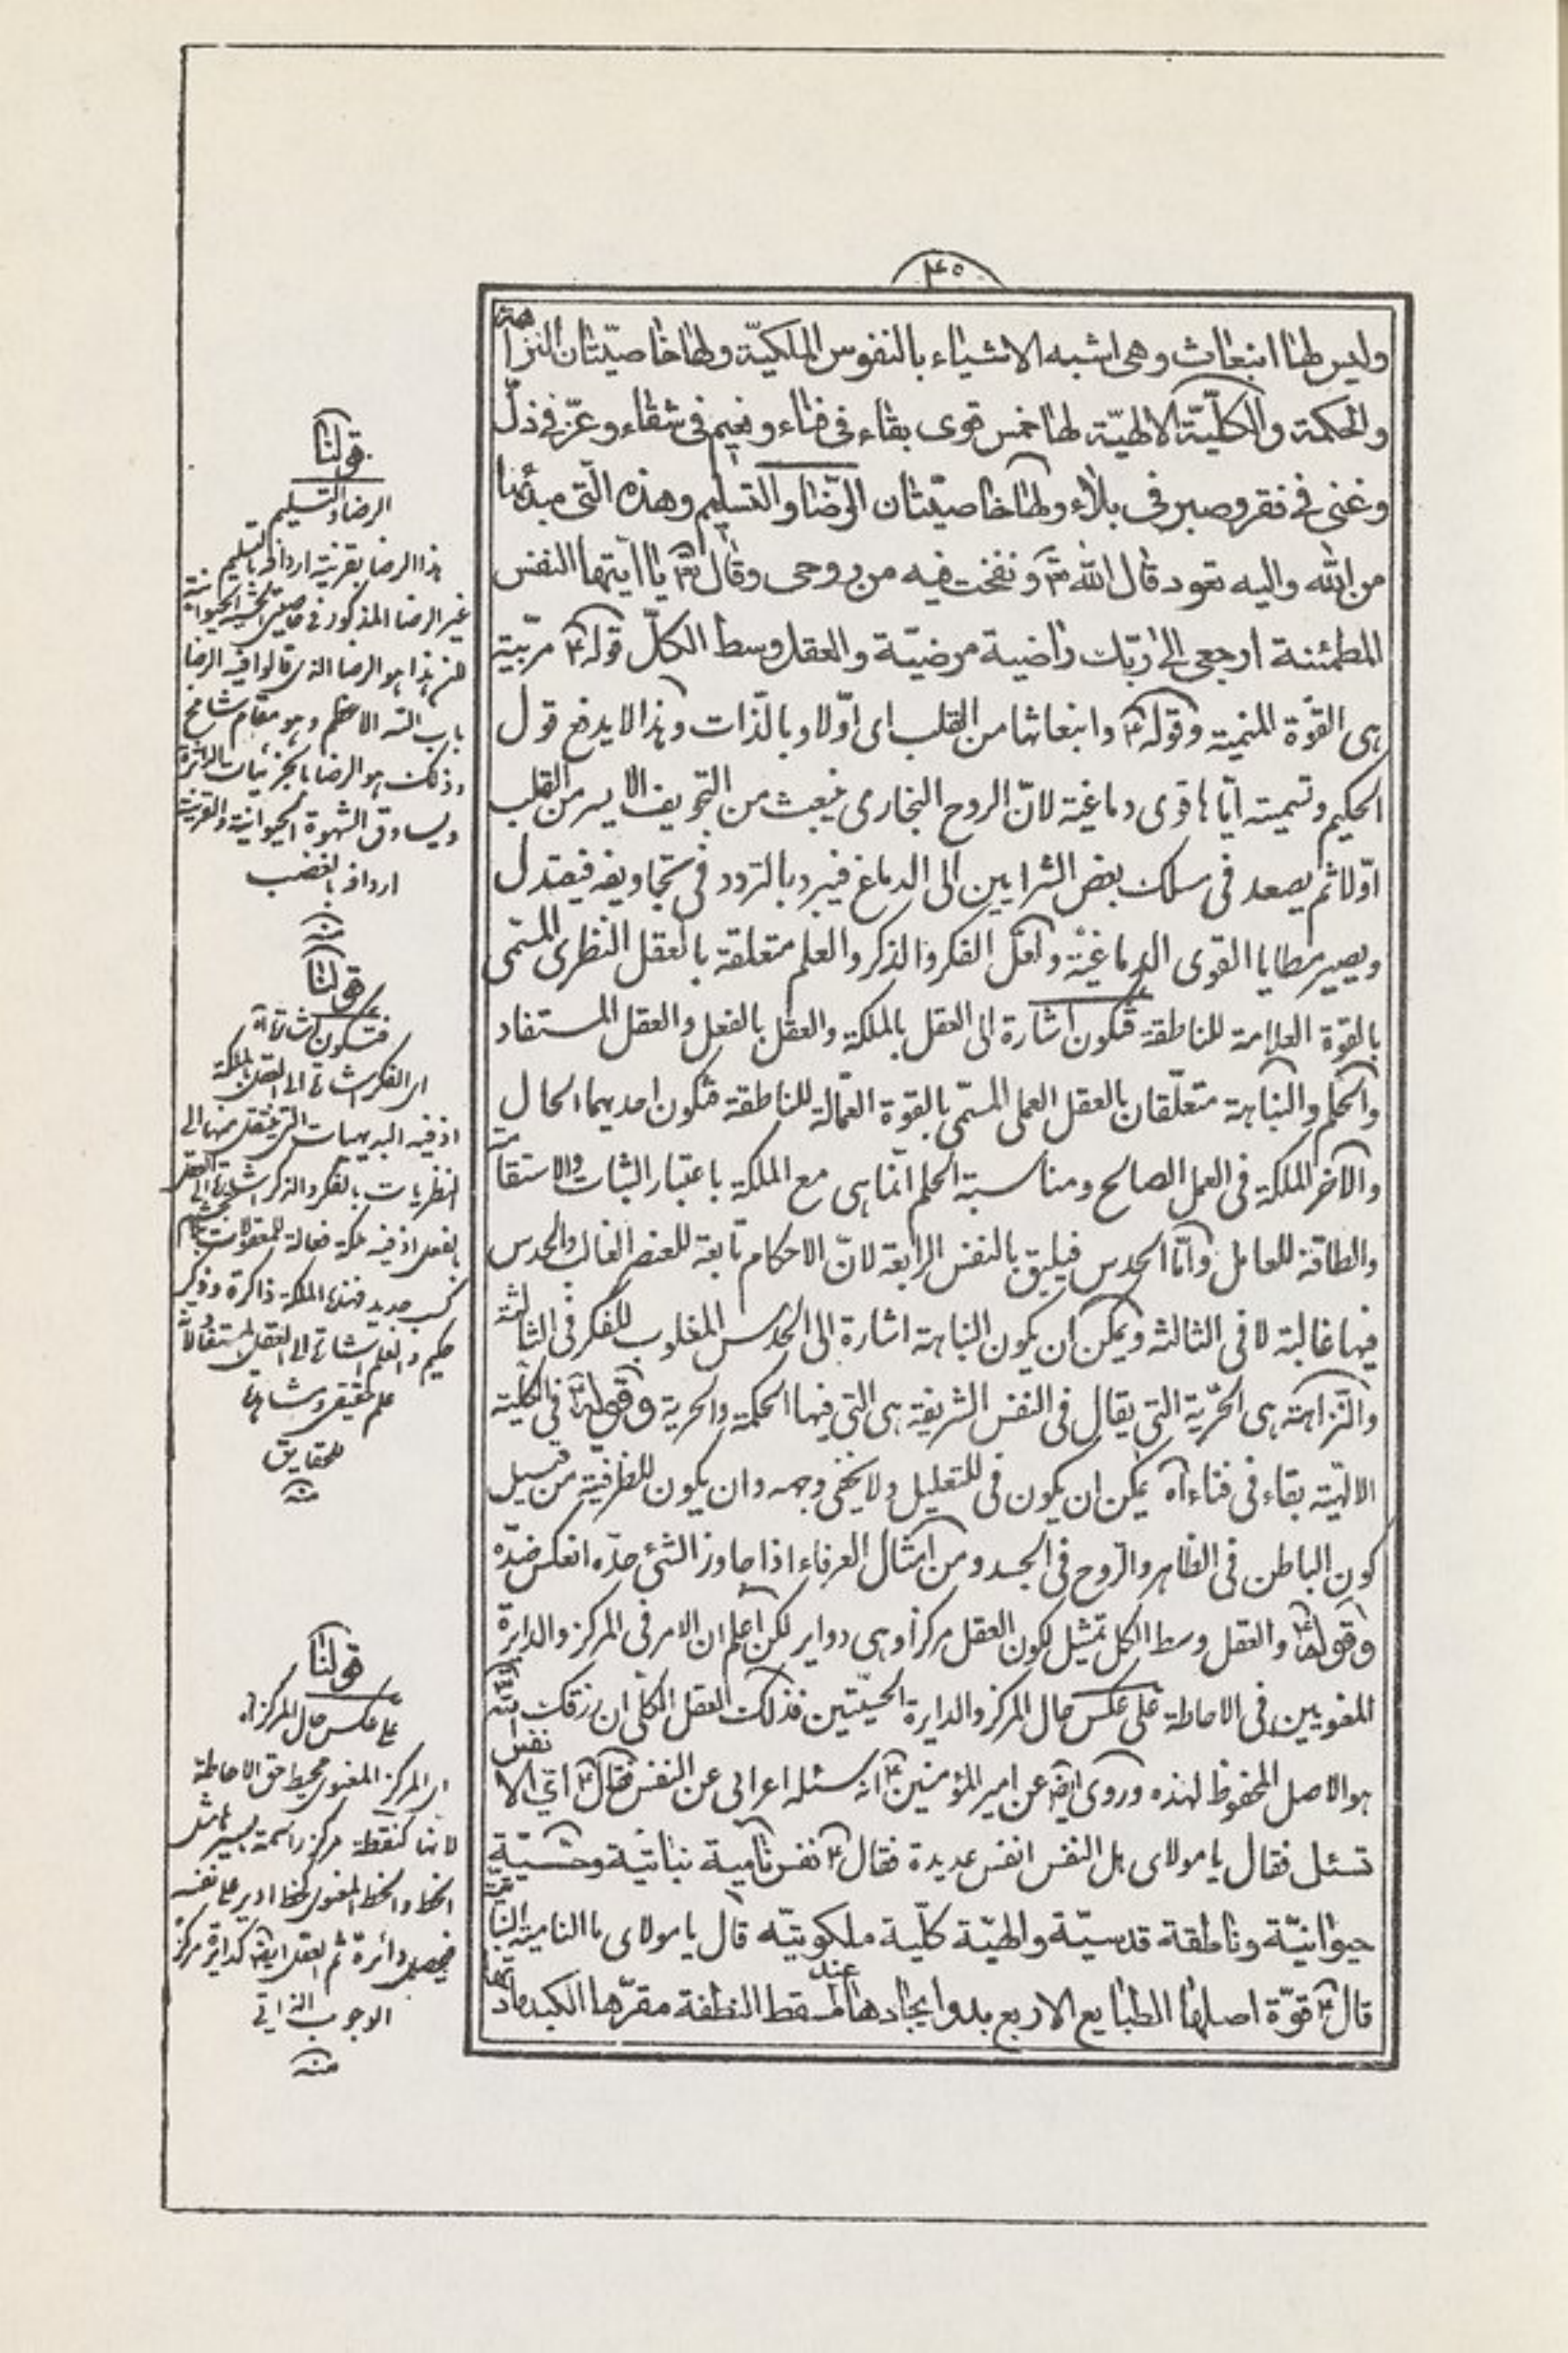 ٤٥
وليس لها انبعاث وهى اشبه الاشياء بالنفوس الملكيّة ولها خاصيّتان النزاهة
والحكمة والكلّيّة الالهيّة لها خمس قوى بقاء فى فناء ونعيم فى شقاء وعزّ فى ذلّ
وغنى فى فقر وصبر فى بلاء ولها خاصيّتان الرّضا والتسليم وهذه الّتى مبدئها
من الله واليه تعود قال الله تع ونفخت فيه من روحى وقال تع يا ايّتها النفس
المطمئنة ارجعى الى ربّك راضية مرضيّة والعقل وسط الكلّ قوله ع مربّية
هى القوّة المنمية وقوله ع وانبعاثها من القلب اى اوّلا وبالذات وهذا لا يدفع قول
الحكيم وتسميته ايّاها قوى دماغيّة لانّ الروح البخارى ينبعث من التجويف الايسر من القلب
اوّلا ثم يصعد فى مسلك بعض الشرايين الى الدماغ فيبرد بالتردد فى تجاويفه فيعتدل
ويصير مطايا القوى الدماغيّة ولعلّ الفكر والذكر والعلم متعلقة بالعقل النظرى المسمّى
بالقوة العلامة للناطقة فتكون اشارة الى العقل بالملكة والعقل بالفعل والعقل المستفاد
والحلم والنباهة متعلّقان بالعقل العملى المسمّى بالقوة العمّالة للناطقة فتكون احديهما الحال
والآخر الملكة فى العمل الصالح ومناسبة الحلم انّما هى مع الملكة باعتبار الثبات والاستقامة
والطاقة للعامل وامّا الحدس فيليق بالنفس الرابعة لانّ الاحكام تابعة للعنصر الغالب والحدس
فيها غالبة لا فى الثالثة ويمكن ان يكون النباهة اشارة الى الحدس المغلوب للفكر فى الثالثة
والنّزاهة هى الحرّية التى يقال فى النفس الشريفة هى التى فيها الحكمة والحرية وقوله ع فى الكلّية
الالهيّة بقاء فى فناء آه يمكن ان يكون فى للتعليل ولا يخفى وجهه وان يكون للظرفية من قبيل
كون الباطن فى الظاهر والرّوح فى الجسد ومن امثال العرفاء اذا جاوز الشئ حدّه انعكس ضدّه
وقوله ع والعقل وسط الكل تمثيل لكون العقل مركزا وهى دواير لكن اعلم ان الامر فى المركز والدايرة
المعنويين فى الاحاطة على عكس حال المركز والدايرة الحسّيتين فذلك العقل الكلّى ان رزقك الله
هو الاصل المحفوظ لهذه وروى ايض عن امير المؤمنين ع انه سئله اعرابى عن النفس فقال ع اىّ الانفس
تسئل فقال يا مولاى هل النفس انفس عديدة فقال ع نفس نامية نباتيّة وحسّيّة
حيوانيّة وناطقة قدسيّة والهيّة كلّية ملكوتيّه قال يا مولاى ما النامية النباتية
قال ع قوّة اصلها الطبايع الاربع بدو ايجادها عند مسقط النطفة مقرّها الكبد مادتها
قولنا
الرضا والتسليم
هذا الرضا بقرينة اردافه بالتسليم
غير الرضا المذكور فى خاصيّتى الحسّية الحيوانية
هذا هو الرضا الذى قالوا فيه الرضا
باب الله الاعظم وهو مقام شامخ
وذلك هو الرضا بالجزئيات الداثرة
ويساوق الشهوة الحيوانية والقرينة
اردافه بالغضب
منه
قولنا
فتكون اشارة آه
اى الفكر اشارة الى العقل بالملكة
اذ فيه البديهيات التى ينتقل منها الى
النظريات بالفكر والذكر اشارة الى العقل
بالفعل اذ فيه ملكة فعالة للمعقولات بلا تجشم
كسب جديد فهذه الملكة ذاكرة وذكر
حكيم والعلم اشارة الى العقل المستفاد لانه
علم حقيقى ومشاهدة
للحقايق
منه
قولنا
على عكس حال المركز اه
اى المركز المعنوى محيط حق الاحاطة
لانها كنقطة مركز راسمة بسيرها مثل
الخط والخط المعنوى كخط ادير على نفسه
فيحصل دائرة ثم العقل ايض كدايرة مركز
الوجوب الذاتى
منه